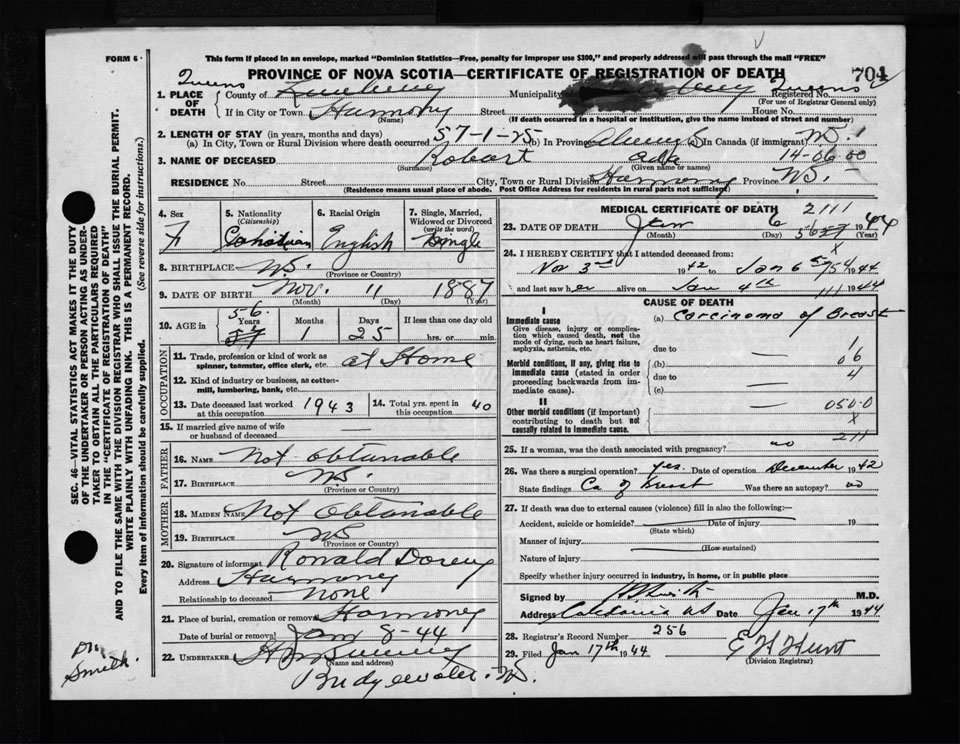 FORM 6
This form if placed in an envelope, marked "Dominion Statistics—Free, penalty for improper use $300," and properly addressed will pass through the mail "FREE"
PROVINCE OF NOVA SCOTIA—CERTIFICATE OF REGISTRATION OF DEATH
704
Queens
1. PLACE OF DEATH County of Municipality of Queens Registered No.
(For use of Registrar General only)
If in City or Town Harmony Street House No.
(Name) (If death occurred in a hospital or institution, give the name instead of street and number)
2. LENGTH OF STAY (in years, months and days)
(a) In City, Town or Rural Division where death occurred 57-1-25 (b) In Province Always (c) In Canada (if immigrant)
3. NAME OF DECEASED Robart Ada 14-06 00
(Surname) (Given name or names)
RESIDENCE No. Street City, Town or Rural Division Harmony Province N.S.
(Residence means usual place of abode. Post Office Address for residents in rural parts not sufficient)
4. Sex F
5. Nationality (Citizenship) Canadian
6. Racial Origin English
7. Single, Married, Widowed or Divorced (write the word) Single
8. BIRTHPLACE N.S.
(Province or Country)
9. DATE OF BIRTH Nov. 11 1887
(Month) (Day) (Year)
10. AGE in 56 57 Years 1 Months 25 Days If less than one day old hrs. or min.
OCCUPATION
11. Trade, profession or kind of work as spinner, teamster, office clerk, etc. at Home
12. Kind of industry or business, as cotton-mill, lumbering, bank, etc.
13. Date deceased last worked at this occupation 1943
14. Total yrs. spent in this occupation 40
15. If married give name of wife or husband of deceased —
FATHER
16. NAME Not Obtanable
17. BIRTHPLACE N.S.
(Province or Country)
MOTHER
18. MAIDEN NAME Not Obtanable
19. BIRTHPLACE N.S.
(Province or Country)
20. Signature of informant Ronald Dorey
Address Harmony
Relationship to deceased None
21. Place of burial, cremation or removal Harmony
Date of burial or removal Jan 8-44
22. UNDERTAKER
(Name and address)
Bridgewater N.S.
MEDICAL CERTIFICATE OF DEATH 2111
23. DATE OF DEATH Jan 6 1944
(Month) (Day) (Year)
24. I HEREBY CERTIFY that I attended deceased from X
Nov 3rd 1942 to Jan 6th 1944
and last saw her alive on Jan 4th 1944
CAUSE OF DEATH
I
Immediate cause (a) Carcinoma of Breast
Give disease, injury or complication which caused death, not the mode of dying, such as heart failure, asphyxia, asthenia, etc.
due to — 1
(b) 06
Morbid conditions, if any, giving rise to immediate cause (stated in order proceeding backwards from immediate cause).
due to — 4
(c)
II
Other morbid conditions (if important) contributing to death but not causally related to immediate cause. — 050-0
X
211
25. If a woman, was the death associated with pregnancy? no
26. Was there a surgical operation? yes. Date of operation December 1942
State findings Ca of breast Was there an autopsy? no
27. If death was due to external causes (violence) fill in also the following:—
Accident, suicide or homicide? Date of injury 19
(State which)
Manner of injury
(How sustained)
Nature of injury
Specify whether injury occurred in industry, in home, or in public place
Signed by M.D.
Address Caledonia NS Date Jan 17th 1944
28. Registrar's Record Number 256
29. Filed Jan 17th 1944 E H Hunt
(Division Registrar)
SEC. 46—VITAL STATISTICS ACT MAKES IT THE DUTY OF THE UNDERTAKER OR PERSON ACTING AS UNDERTAKER TO OBTAIN ALL THE PARTICULARS REQUIRED IN THE "CERTIFICATE OF REGISTRATION OF DEATH" AND TO FILE THE SAME WITH THE DIVISION REGISTRAR WHO SHALL ISSUE THE BURIAL PERMIT.
WRITE PLAINLY WITH UNFADING INK. THIS IS A PERMANENT RECORD.
Every item of information should be carefully supplied. (See reverse side for instructions.)
Dr. Smith